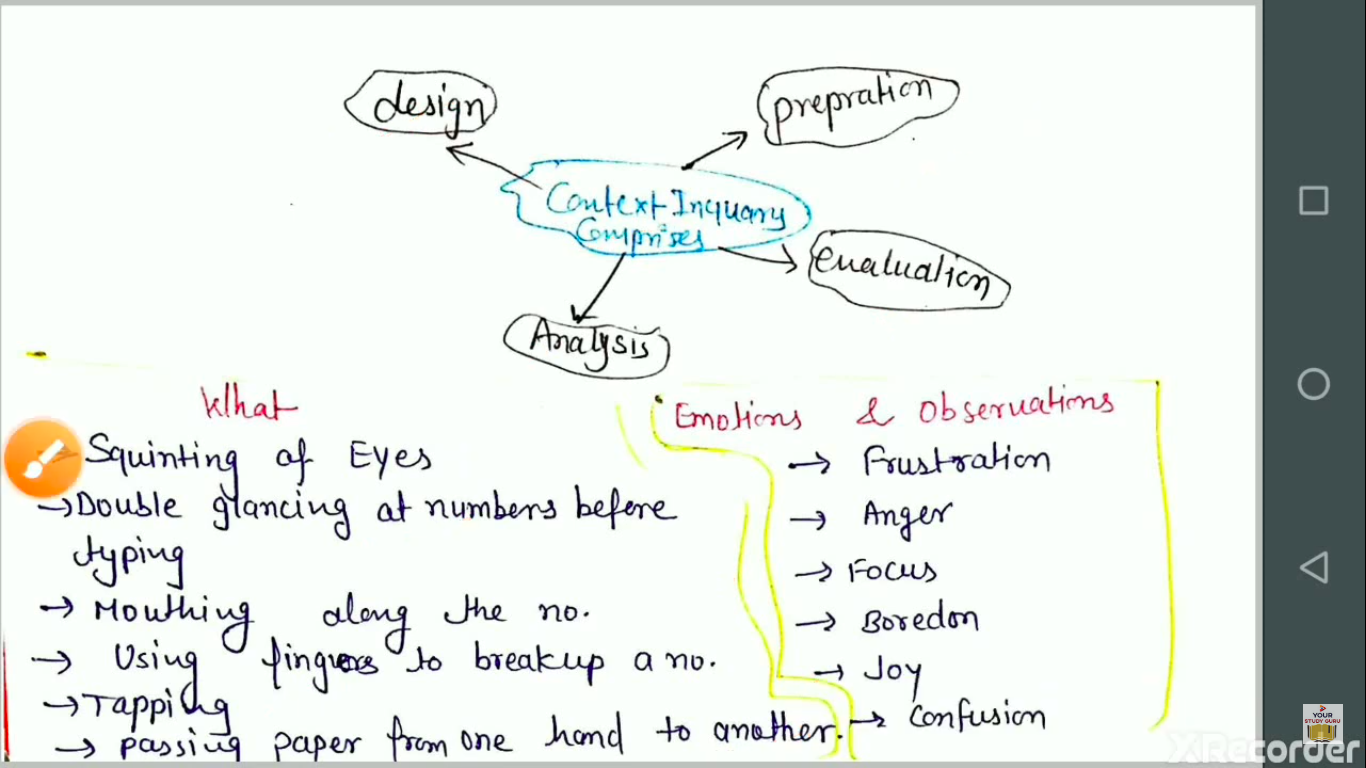 design
prepration
Context Inquary
Comprises
evaluation
Analysis
What
Squinting of Eyes
→Double glancing at numbers before
typing
→ Mouthing along the no.
→ Using fingers to breakup a no.
→Tapping
→ passing paper from one hand to another.
Emotions & Observations
→ Frustration
→ Anger
→ Focus
→ Boredon
→ Joy
→ Confusion
YOUR
STUDY GURU
XRecorder